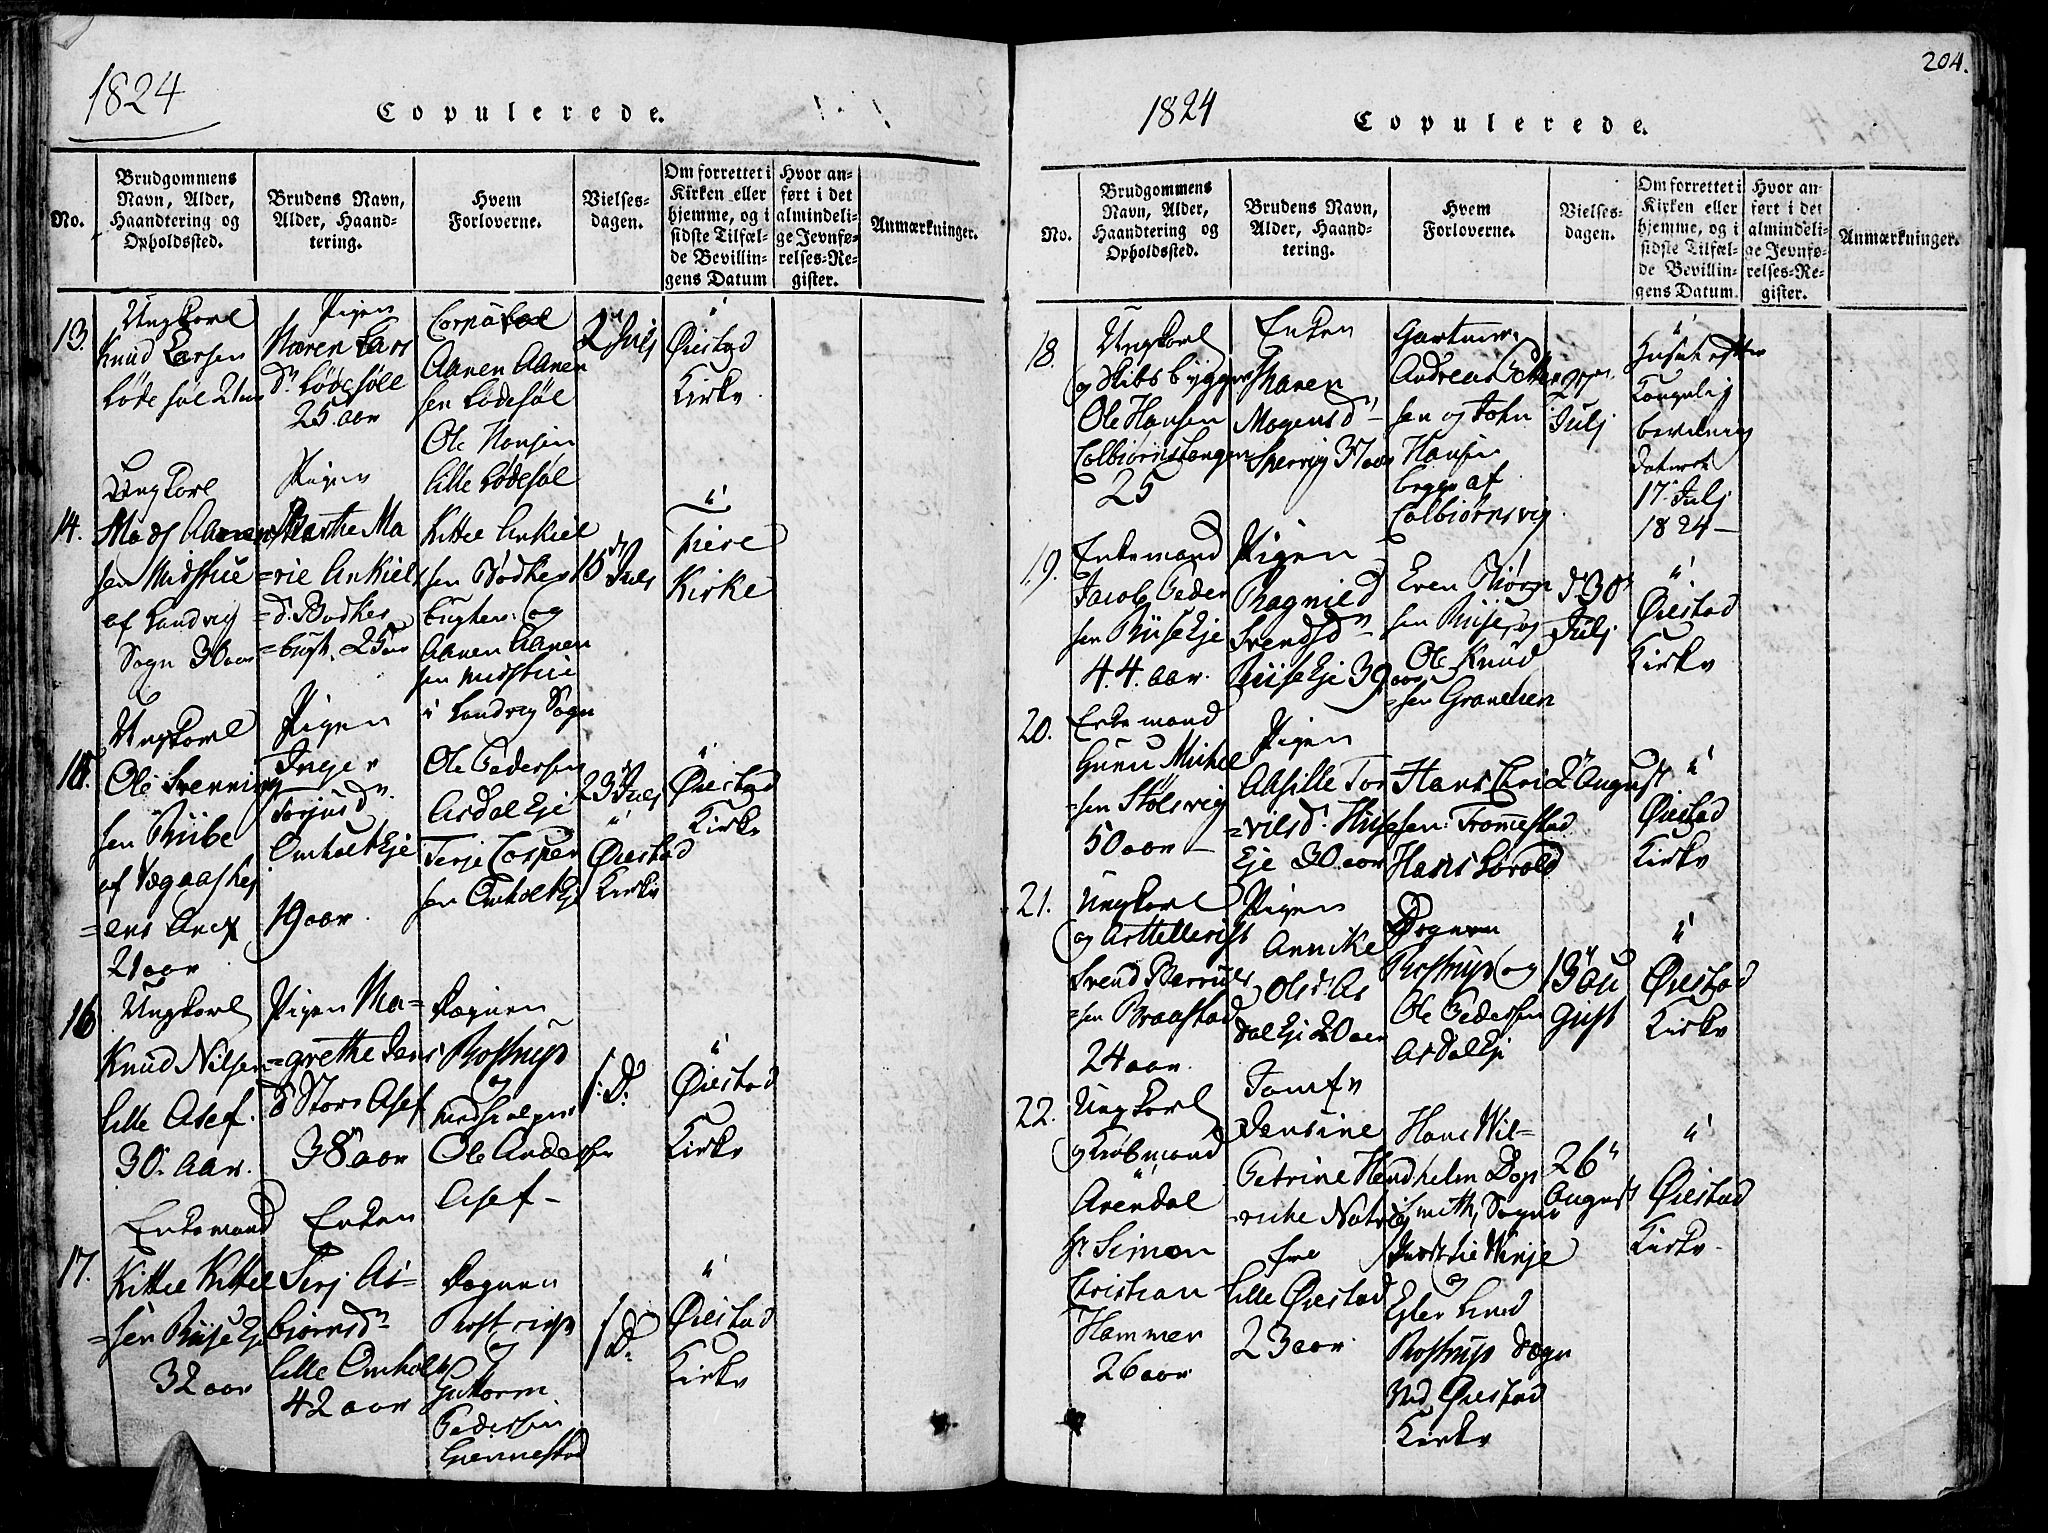 1824
Copulerede.
No.
Brudgommens
Navn, Alder,
Haandtering og
Opholdssted.
Brudens Navn,
Alder, Haand-
tering.
Hvem
Forloverne.
Vielses-
dagen.
Om forrettet i
Kirken eller
hjemme, og i
sidste Tilfæl-
de Bevillin-
gens Datum
Hvor an-
ført i det
almindeli-
ge Jevnfø-
relses-Re-
gister.
Anmærkninger.
13.
Ungkarl
Knud Larsen
Lødesøl
Pigen
Maren Lars
dr. Lødesøll
25 aar
Corporal
Aanen Aanen
sen Lødesøl
Ole Hansen
Lille Lødesøl
2 Julj
Øiestad
Kirke
14.
Ungkarl
Mads Aanen
sen Midstue
af Landvig
Sogn 30 aar
Pigen
Marthe Ma
=rie Ankiels
d. Bødker
=bugt. 25 aar
Kittel Ankiel
sen Bødker
bugten: og
Aanen Aanen
sen Midstue
i Landvig Sogn
15 Julj
Fiere
Kirke
15.
Ungkarl
Ole Svenning
sen Riibe
af Vegaashej
=ens Anex
21 aar
Pigen
Inger
Torjusd
Omholt Eje
19 aar
Ole Pedersen
Asdal Eje
Terje Casper
sen Omholt Eje
23 Julj
Øiestad
Kirke
Øiestad
Kirke
16
Ungkarl
Knud Nilsen
Lille Asef.
30. aar.
Pigen Ma-
=grethe Jens
d. Store Asef
38 aar
Degnen
Rostrup
og
Ole Anders
sen
Asef -
1: D:
Øiestad
Kirke
17.
Enkemand
Kittel Kittel
=sen Riise Eje
32 aar
Enken
Terj As-
biørnsdr
Lille Omholt
42 aar
Degnen
Rostrup
og
Guttorm
Pedersen
Giennestad
1 D:
Øiestad
Kirke
1824
Copulerede.
204.
No.
Brudgommens
Navn, Alder,
Haandtering og
Opholdssted.
Brudens Navn,
Alder, Haand-
tering.
Hvem
Forloverne.
Vielses-
dagen.
Om forrettet i
Kirken eller
hjemme, og i
sidste Tilfæl-
de Bevillin-
gens Datum.
Hvor an-
ført i det
almindeli-
ge Jevnfø-
relses-Re-
gister.
Anmærkninger.
18.
Ungkarl
og Skibsbygger
Ole Hansen
Colbiørnstangen
25
Enken
Maren
Mogensd
37 aar
Gartner
Andreas Petter
sen og John
Hansen
begge af
Colbiørnsvig
27
Julj
Huset efter
Kongelig
bevilning
dateret
17. Julj
1824 -
19.
Enkemand
Jacob Peder
sen Riise Eje
44. aar.
Pigen
Ragnild
Svendsdr
Riise Eje 39 aar
Even Biørn
sen Riise, og
Ole Knud
=sen Granelien
d 30
Julj
Øiestad
Kirke
20.
Enkemand
Gunu Michel
=sen Stølsvig
50 aar -
Pigen
Aasille Tor
=vilsd. Huse
Eje 30 aar
Hans Chri
sen: Trommestad
Hans Løvold
2 August
Øiestad
Kirke
21.
Ungkarl
og Arttellerist
Svend Berruls
=sen Braastad
24 aar.
Pigen
Annike
Olsd. As
dal Eje 20 aar
Degnen
Rostrup og
Ole Pedersen
Asdal Eje
13 Au
gust
Øiestad
Kirke
22.
Ungkarl
og Kiøbmand
i
Arendal
Hr Simon
Christian
Hammer
26 aar
Jomfr
Jensine
Petrine Hend
=riche
Lille Øiestad
23 aar.
Hans Wil-
helm Dop
Smith, Sogne
og
Knud
Rostrup Degn
ved Øiestad
Kirke
26
August
Øiestad
Kirke.